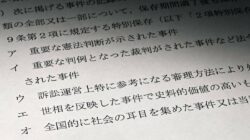 次に掲げる事件の記
類の全部又は一部について、保存期間満了後も
9条第2項に規定する特別保存（以下「2項特別保
ア　重要な憲法判断が示された事件
イ　重要な判例となった裁判がされた事件など法
された事件
ウ　訴訟運営上特に参考になる審理方法により
エ　世相を反映した事件で史料的価値の高いも
オ　全国的に社会の耳目を集めた事件又は